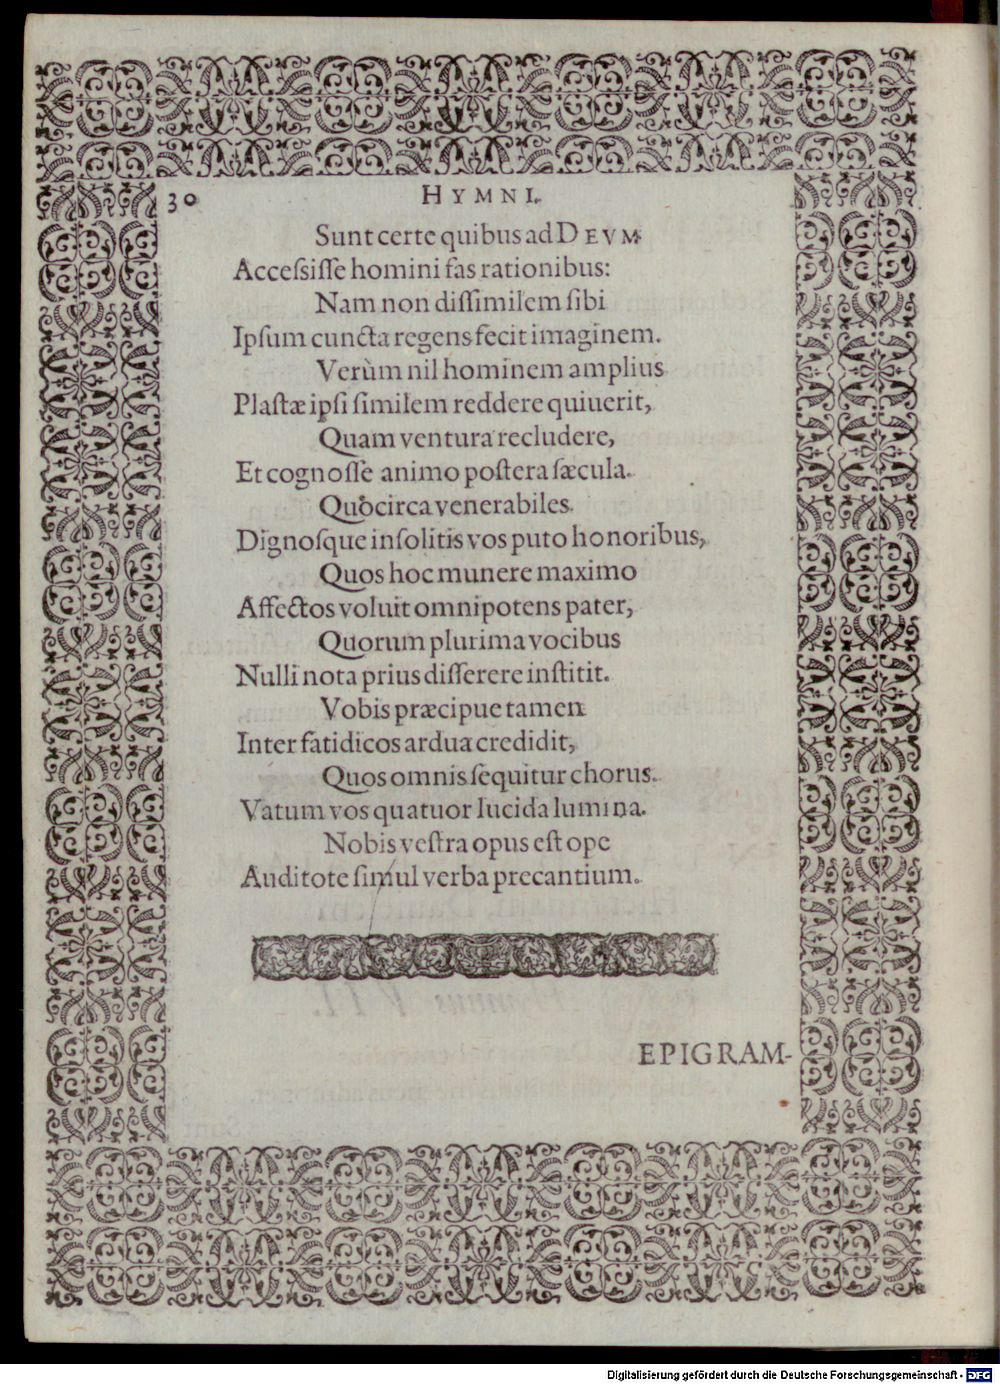 30 HYMNI.
Sunt certe quibus ad DEVM
Accessisse homini fas rationibus:
Nam non dissimilem sibi
Ipsum cuncta regens fecit imaginem.
Verùm nil hominem amplius
Plastæ ipsi similem reddere quiuerit,
Quam ventura recludere,
Et cognosse animo postera sæcula.
Quòcirca venerabiles.
Dignosque insolitis vos puto honoribus,
Quos hoc munere maximo
Affectos voluit omnipotens pater,
Quorum plurima vocibus
Nulli nota prius disserere institit.
Vobis præcipue tamen
Inter fatidicos ardua credidit,
Quos omnis sequitur chorus.
Vatum vos quatuor lucida lumina.
Nobis vestra opus est ope
Auditote simul verba precantium.
EPIGRAM-
Digitalisierung gefördert durch die Deutsche Forschungsgemeinschaft - DFG